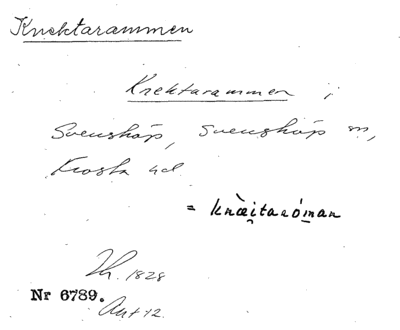 Knektarammen
Knektarammen i
Svensköp, Svensköp sn,
Frosta hd.
= knä̀i̯taróman
Th. 1828
Nr 6789.
Ant 12.